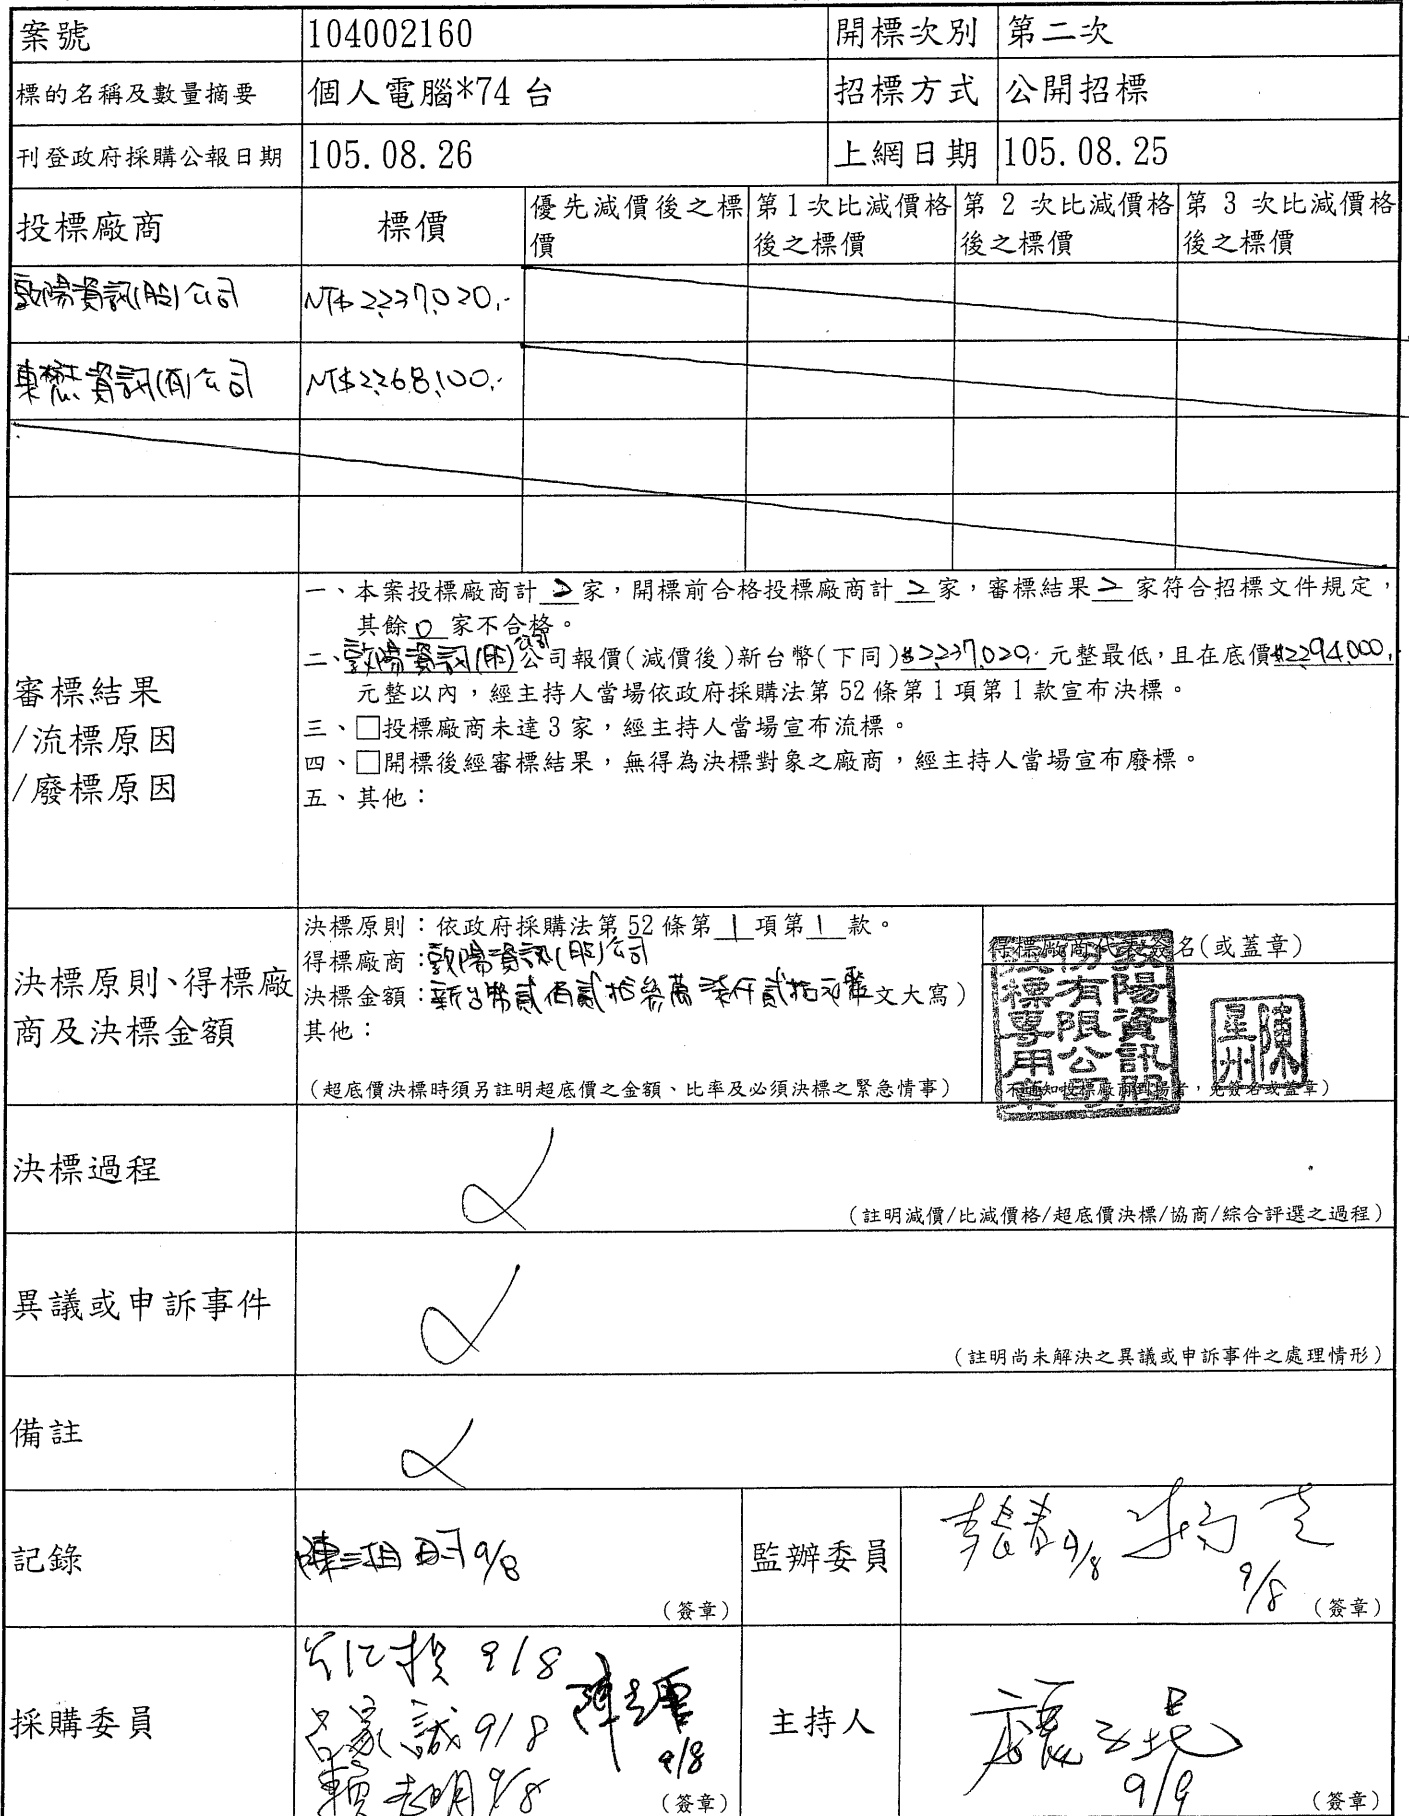 案號 104002160 開標次別 第二次
標的名稱及數量摘要 個人電腦*74 台 招標方式 公開招標
刊登政府採購公報日期 105.08.26 上網日期 105.08.25
投標廠商 標價 優先減價後之標價 第1次比減價格後之標價 第 2 次比減價格後之標價 第 3 次比減價格後之標價
敦陽資訊(股)公司 NT$2,237,020.-
資訊(有)公司 NT$2,268,100.-
審標結果
/流標原因
/廢標原因
一、本案投標廠商計 2 家,開標前合格投標廠商計 2 家,審標結果 2 家符合招標文件規定,
其餘 0 家不合格。
二、敦陽資訊(股)公司報價(減價後)新台幣(下同)$2,237,020.- 元整最低,且在底價$2,294,000.-
元整以內,經主持人當場依政府採購法第 52 條第 1 項第 1 款宣布決標。
三、□投標廠商未達 3 家,經主持人當場宣布流標。
四、□開標後經審標結果,無得為決標對象之廠商,經主持人當場宣布廢標。
五、其他:
決標原則、得標廠
商及決標金額
決標原則:依政府採購法第 52 條第 1 項第 1 款。
得標廠商:敦陽資訊(股)公司
決標金額:新台幣貳佰貳拾參萬柒仟貳拾元整文大寫)
其他:
(超底價決標時須另註明超底價之金額、比率及必須決標之緊急情事)
得標廠商代表簽名(或蓋章)
敦陽資訊股
份有限公司
投標專用章
陳星州
(不通知投標廠商到場者,免簽名或蓋章)
決標過程
(註明減價/比減價格/超底價決標/協商/綜合評選之過程)
異議或申訴事件
(註明尚未解決之異議或申訴事件之處理情形)
備註
記錄 9/8 (簽章) 監辦委員 9/8 9/8 (簽章)
採購委員 9/8
呂家誠 9/8 9/8
賴志明 9/8 (簽章)
主持人 9/9 (簽章)